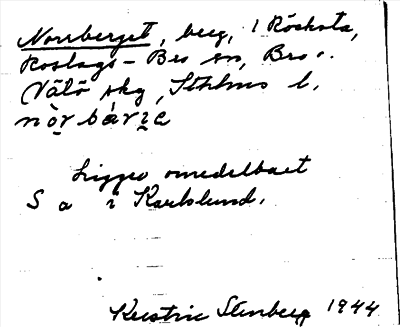 Norrberget, berg, i Röshota,
Roslags-Bro sn, Bro o.
Vätö skg, Sthlms l.
nòrbárẕe
Ligger omedelbart
S a i Karlslund.
Kerstin Stenberg 1944